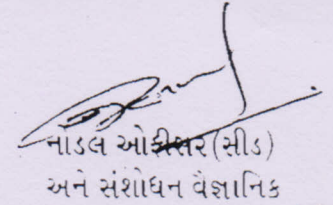 નોડલ ઓફીસર (સીડ)
અને સંશોધન વૈજ્ઞાનિક